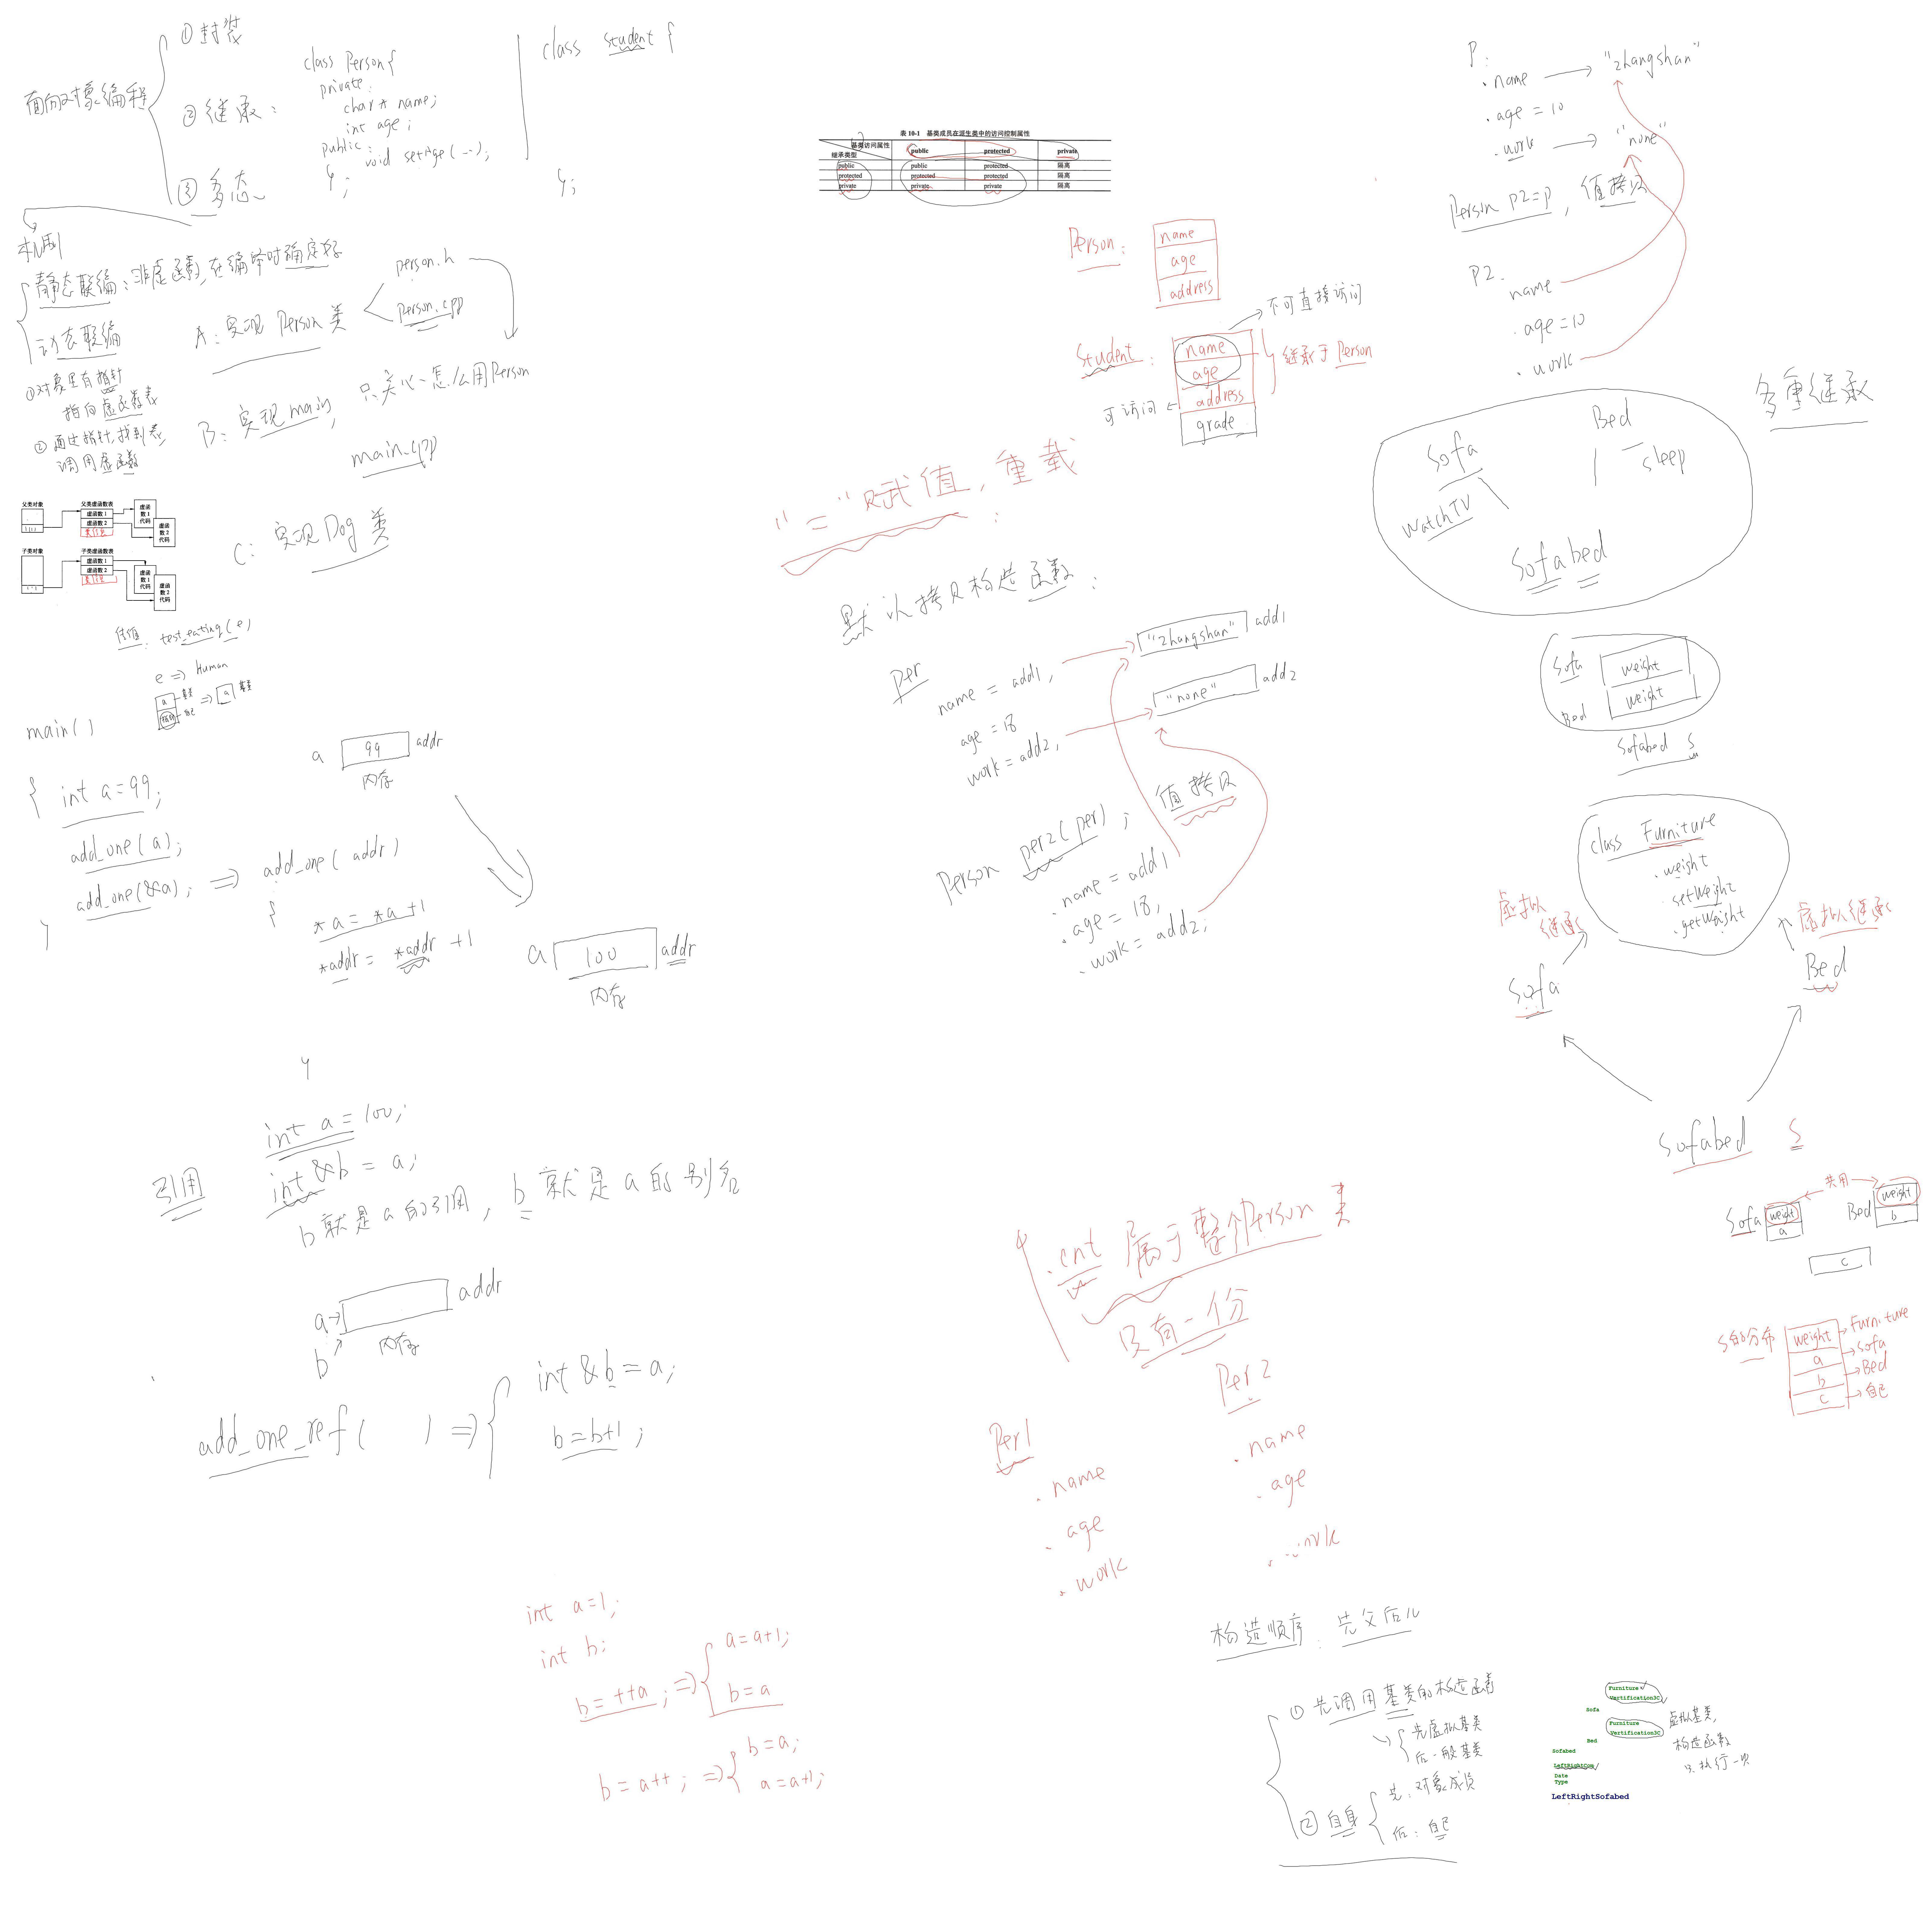 面向对象编程
①封装
②继承:
③多态
class Person{
private:
char* name;
int age;
public:
void setAge(...);
};
class student {
};
机制
静态联编:非虚函数,在编译时确定好
动态联编
①对象里有指针
指向虚函数表
②通过指针,找到表,
调用虚函数
A:实现 Person 类
person.h
person.cpp
B:实现main, 只关心怎么用Person
main.cpp
C:实现Dog 类
父类对象
父类虚函数表
虚函数1
虚函数2
虚函数1代码
虚函数2代码
子类对象
子类虚函数表
虚函数1
虚函数2
虚函数1代码
虚函数2代码
传值: test_eating(e)
e => Human
a
=>
a
自己
main()
{ int a=99;
add_one(a);
add_one(&a); =>
}
add_one( addr)
{
*a = *a +1
*addr = *addr +1
}
a 99 addr
内存
a 100 addr
内存
引用
int a = 100;
int &b = a;
b就是a的引用, b就是a的别名
a-> addr
b 内存
add_one_ref( ) =>
int &b = a;
b=b+1;
int a=1;
int b;
b= ++a; =>
a=a+1;
b=a
b=a++; =>
b=a;
a=a+1;
表 10-1 基类成员在派生类中的访问控制属性
基类访问属性
继承类型
public protected private
public public protected 隔离
protected protected protected 隔离
private private private 隔离
Person:
name
age
address
student:
name
age
address
grade
不可直接访问
继承于Person
可访问
"="赋值,重载
默认拷贝构造函数:
per
name = add1,
age = 18
work = add2,
"zhangshan" add1
"none" add2
Person per2(per); 值拷贝
.name = add1
.age = 18,
.work = add2;
.cnt 属于整个Person 类
只有一份
Per1
.name
.age
.work
Per2
.name
.age
.work
P:
.name "zhangshan"
.age = 10
.work "none"
Person p2=p, 值拷贝
P2.
name
.age=10
.work
多重继承
Sofa
WatchTV
Bed
sleep
Sofabed
Sofa weight
Bed weight
Sofabed s
class Furniture
.weight
.setWeight
.getWeight
虚拟继承
虚拟继承
Sofa
Bed
Sofabed S
共用
Sofa weight
a
Bed weight
b
c
S的分布
weight Furniture
a Sofa
b Bed
c 自己
构造顺序: 先父后儿
①先调用基类的构造函数
先虚拟基类
后一般基类
②自身
先:对象成员
后:自己
Furniture
Vertification3C
Sofa
Furniture
Vertification3C
Bed
Sofabed
LeftRightCom
Date
Type
LeftRightSofabed
虚拟基类,
构造函数
只执行一次